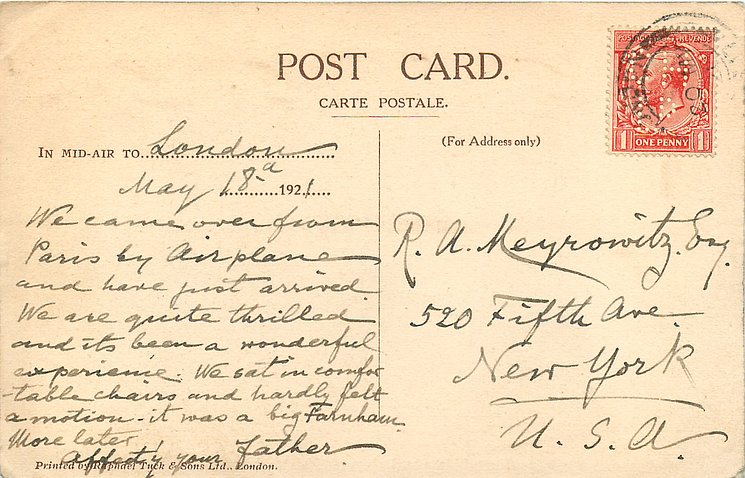 POST CARD.
CARTE POSTALE.
IN MID-AIR TO London
May 18th 1921.
We came over from
Paris by Airplane
and have just arrived.
We are quite thrilled
and its been a wonderful
experience. We sat in comfor
-table chairs and hardly felt
a motion - it was a big Farnham.
More later
Affect'y your Father
Printed by Raphael Tuck & Sons Ltd., London.
(For Address only)
R. A. Meyrowitz, Esq.
520 Fifth Ave.
New York
U. S. A.
POSTAGE REVENUE
1 ONE PENNY 1